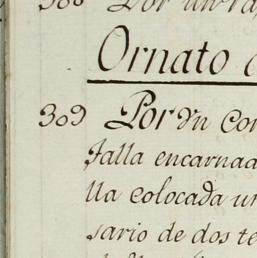 308 Por un
Ornato
309 Por un Con
falla encarnad
lla colocada un
sario de dos te